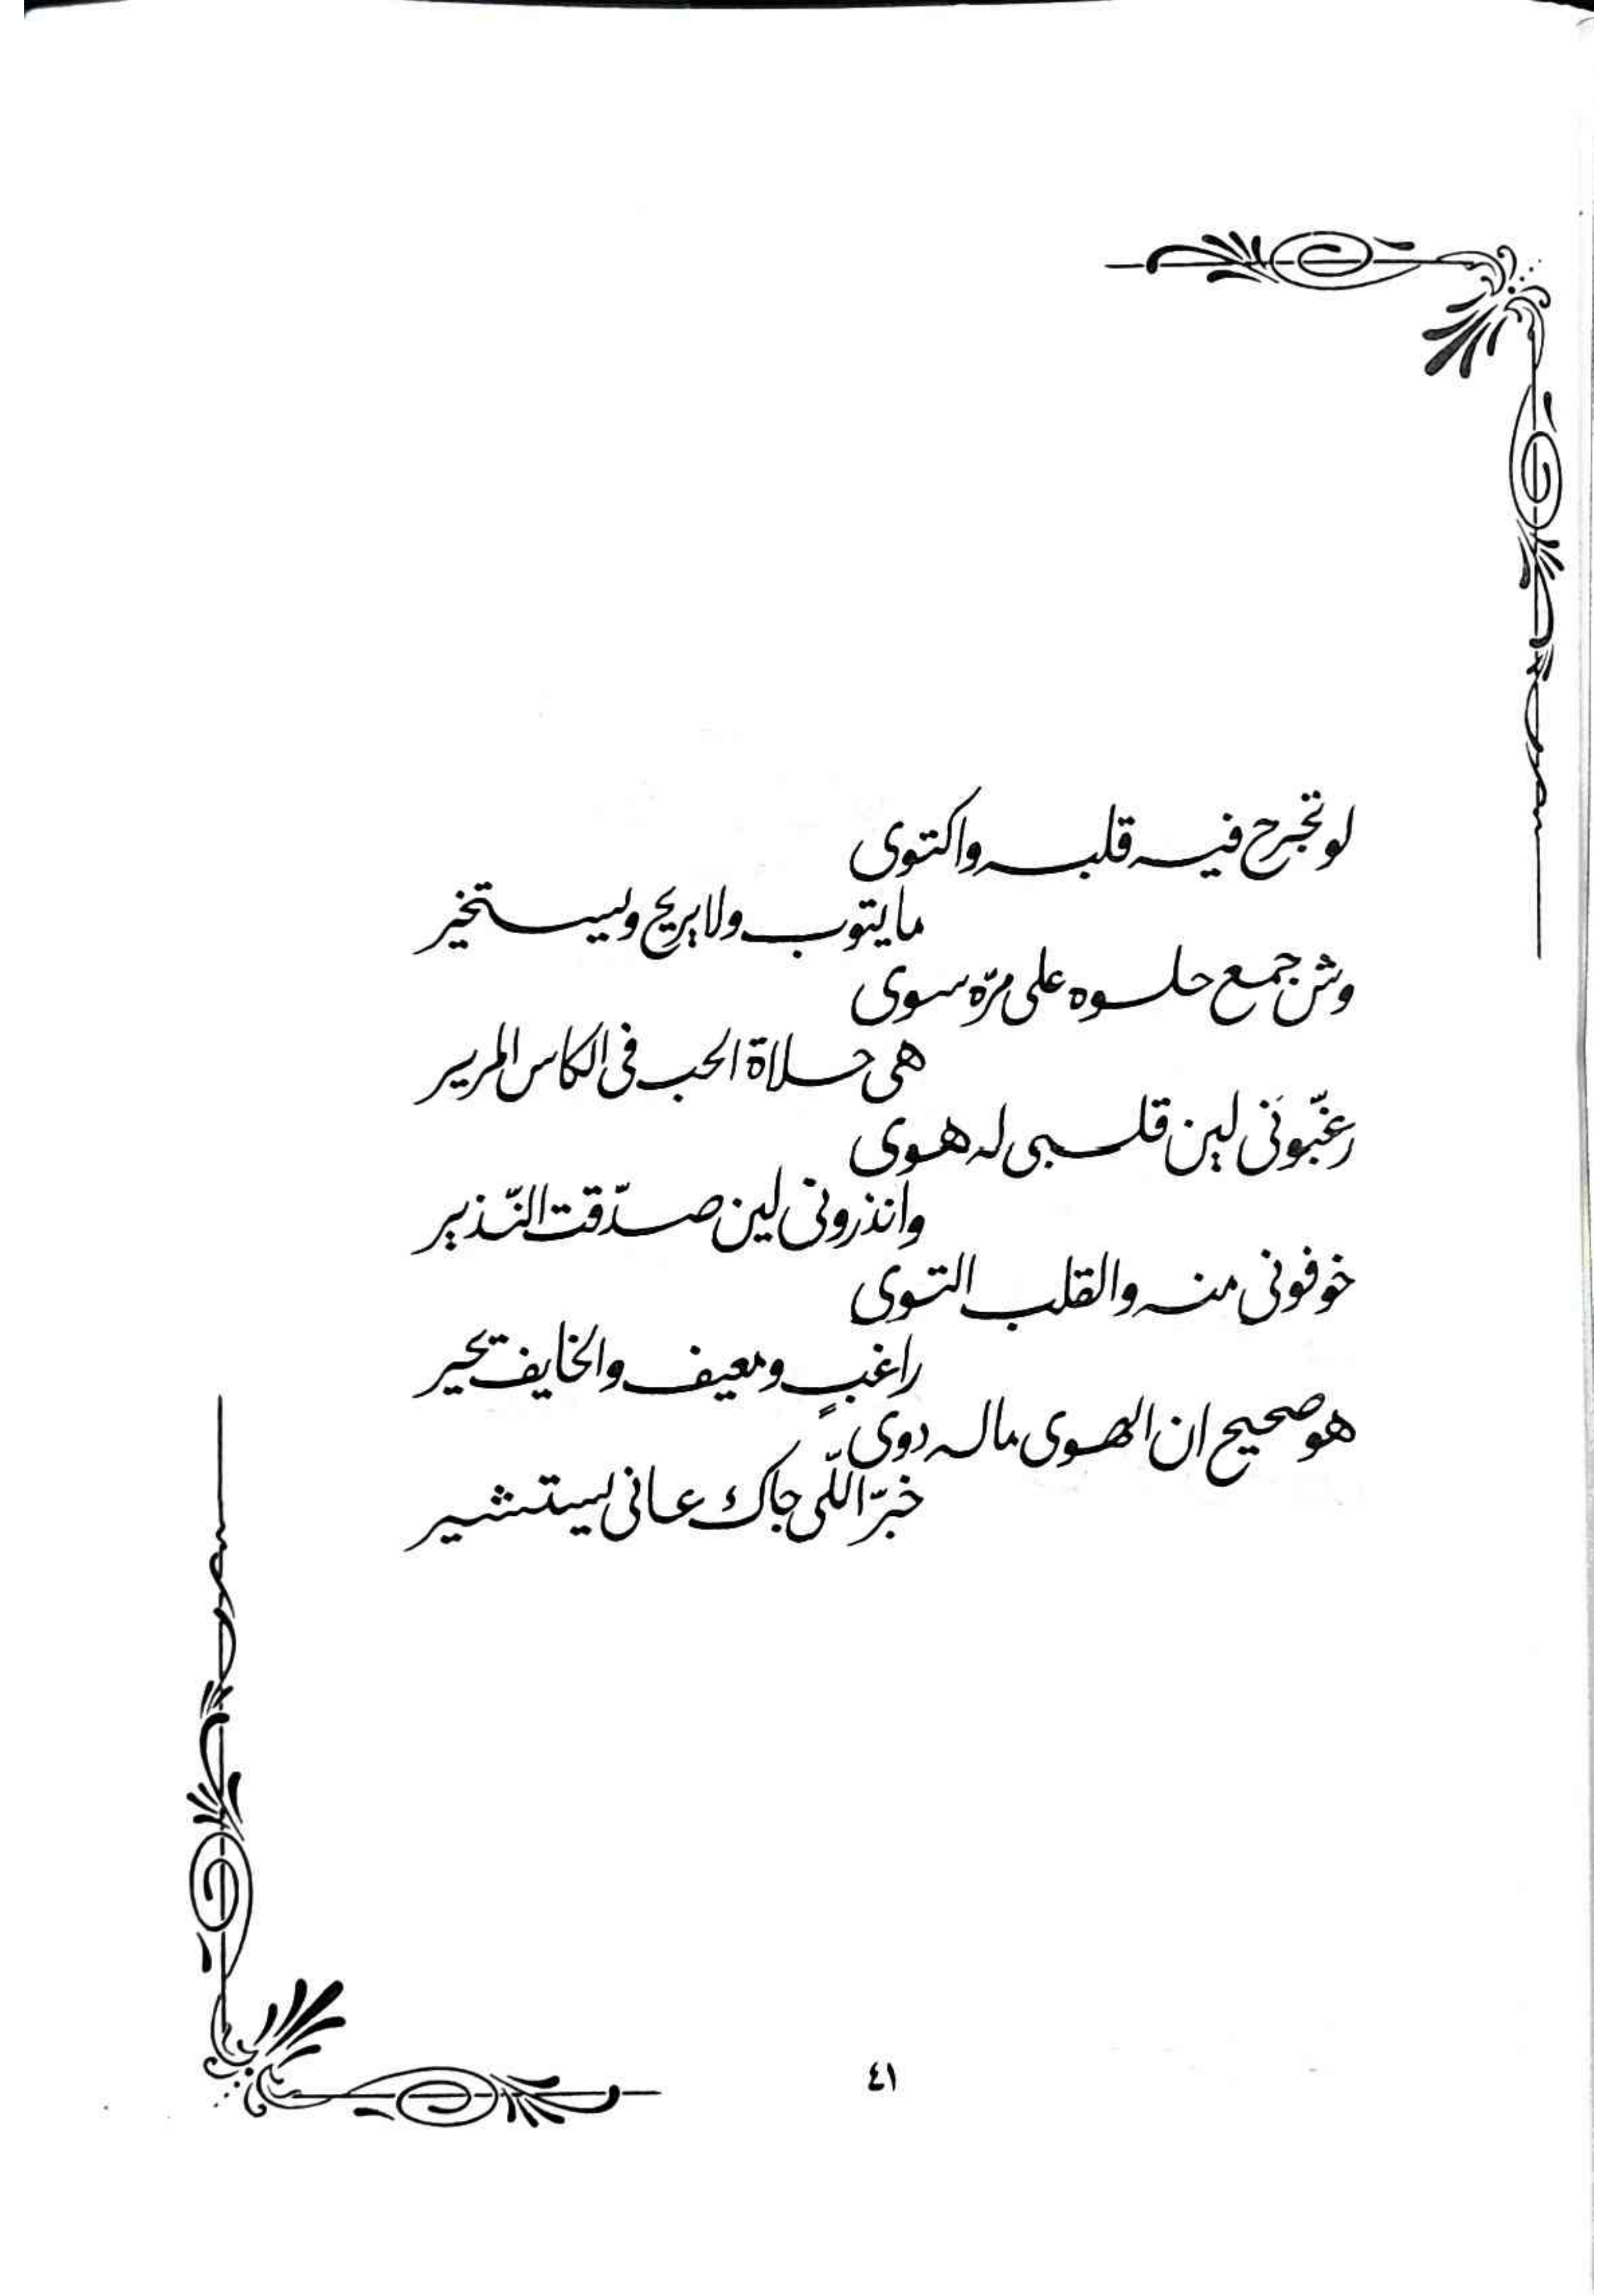 لو تجرح فيه قلبه واكتوى
ما يتوب ولا يريح ويستخير
وش جمع حلوه على مرّه سوى
هى حلاة الحب فى الكاس المرير
رغّبونى لين قلبى له هوى
وانذرونى لين صدّقت النّذير
خوفونى منه والقلب التوى
راغبٍ ومعيف والخايف يحير
هو صحيح ان الهوى ماله دوى
خبّر اللّى جاك عانى يستشير
٤١